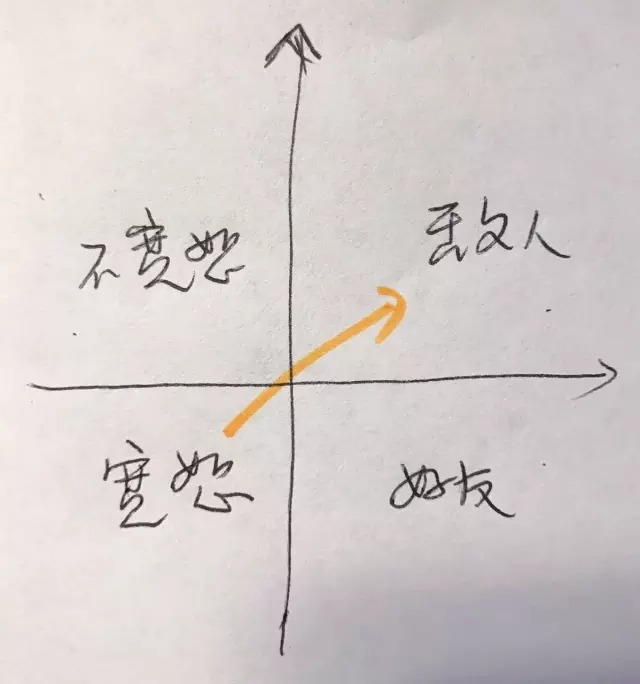 不宽恕
敌人
宽恕
好友